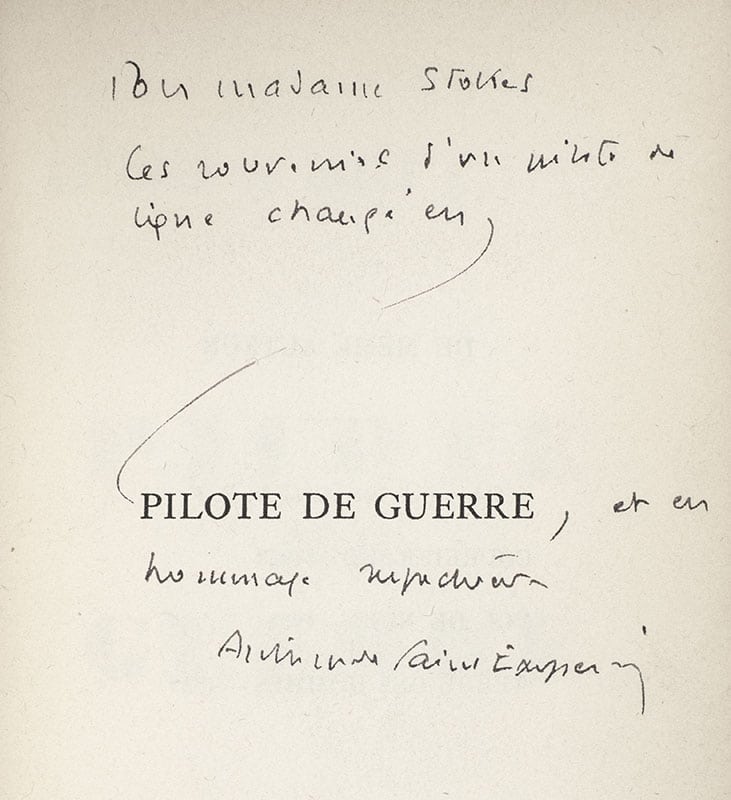 Pour madame Stokes
Ces souvenirs d'un pilote de
ligne changé en
PILOTE DE GUERRE, et en
hommage respectueux
Antoine de Saint Exupery